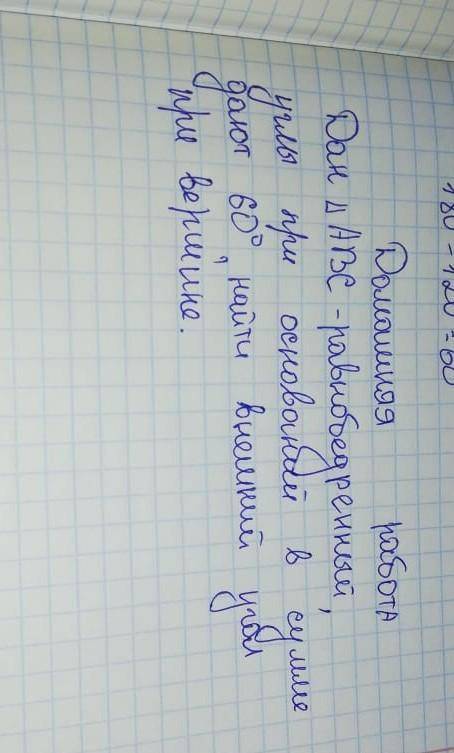 180 - 120 = 60
Домашная работа
Дан Δ ABC - равнобедренный,
углы при основаный в сумме
дают 60°, найти внешний угол
при вершине.